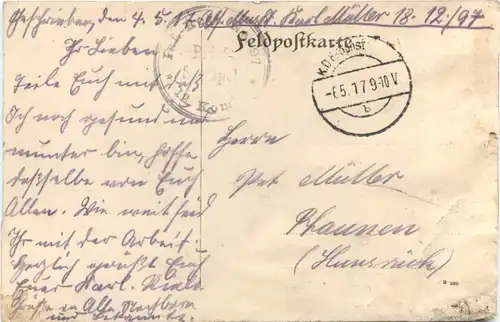 Geschrieben, den 4. 5. 17. Abs. Musk. Karl Müller 18. 12./97
Feldpostkarte
Ihr Lieben
Teile Euch mit daß
Ich noch gesund und
munter bin, hoffe
dasselbe von Euch
Allen. Wie weit seid
Ihr mit der Arbeit.
Herzlich grüßt Euch
Euer Karl. Viele
Grüße an Alle Nachbarn
und Bekannte.
K.D. Feldpost
-6.5.17 9-10V
b
Komp.
Herrn
Pet Müller
Plaunen
(Hunsrück)
B 190